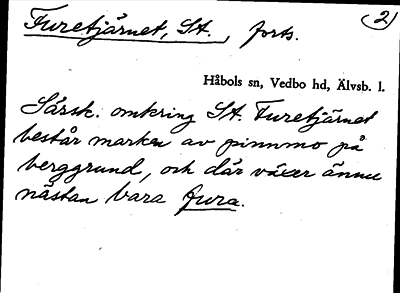 Furetjärnet, St., forts. 2)
Håbols sn, Vedbo hd, Älvsb. l.
Särsk. omkring St. Furetjärnet
består marken av pinnmo på
berggrund, och där växer ännu
nästan bara fura.